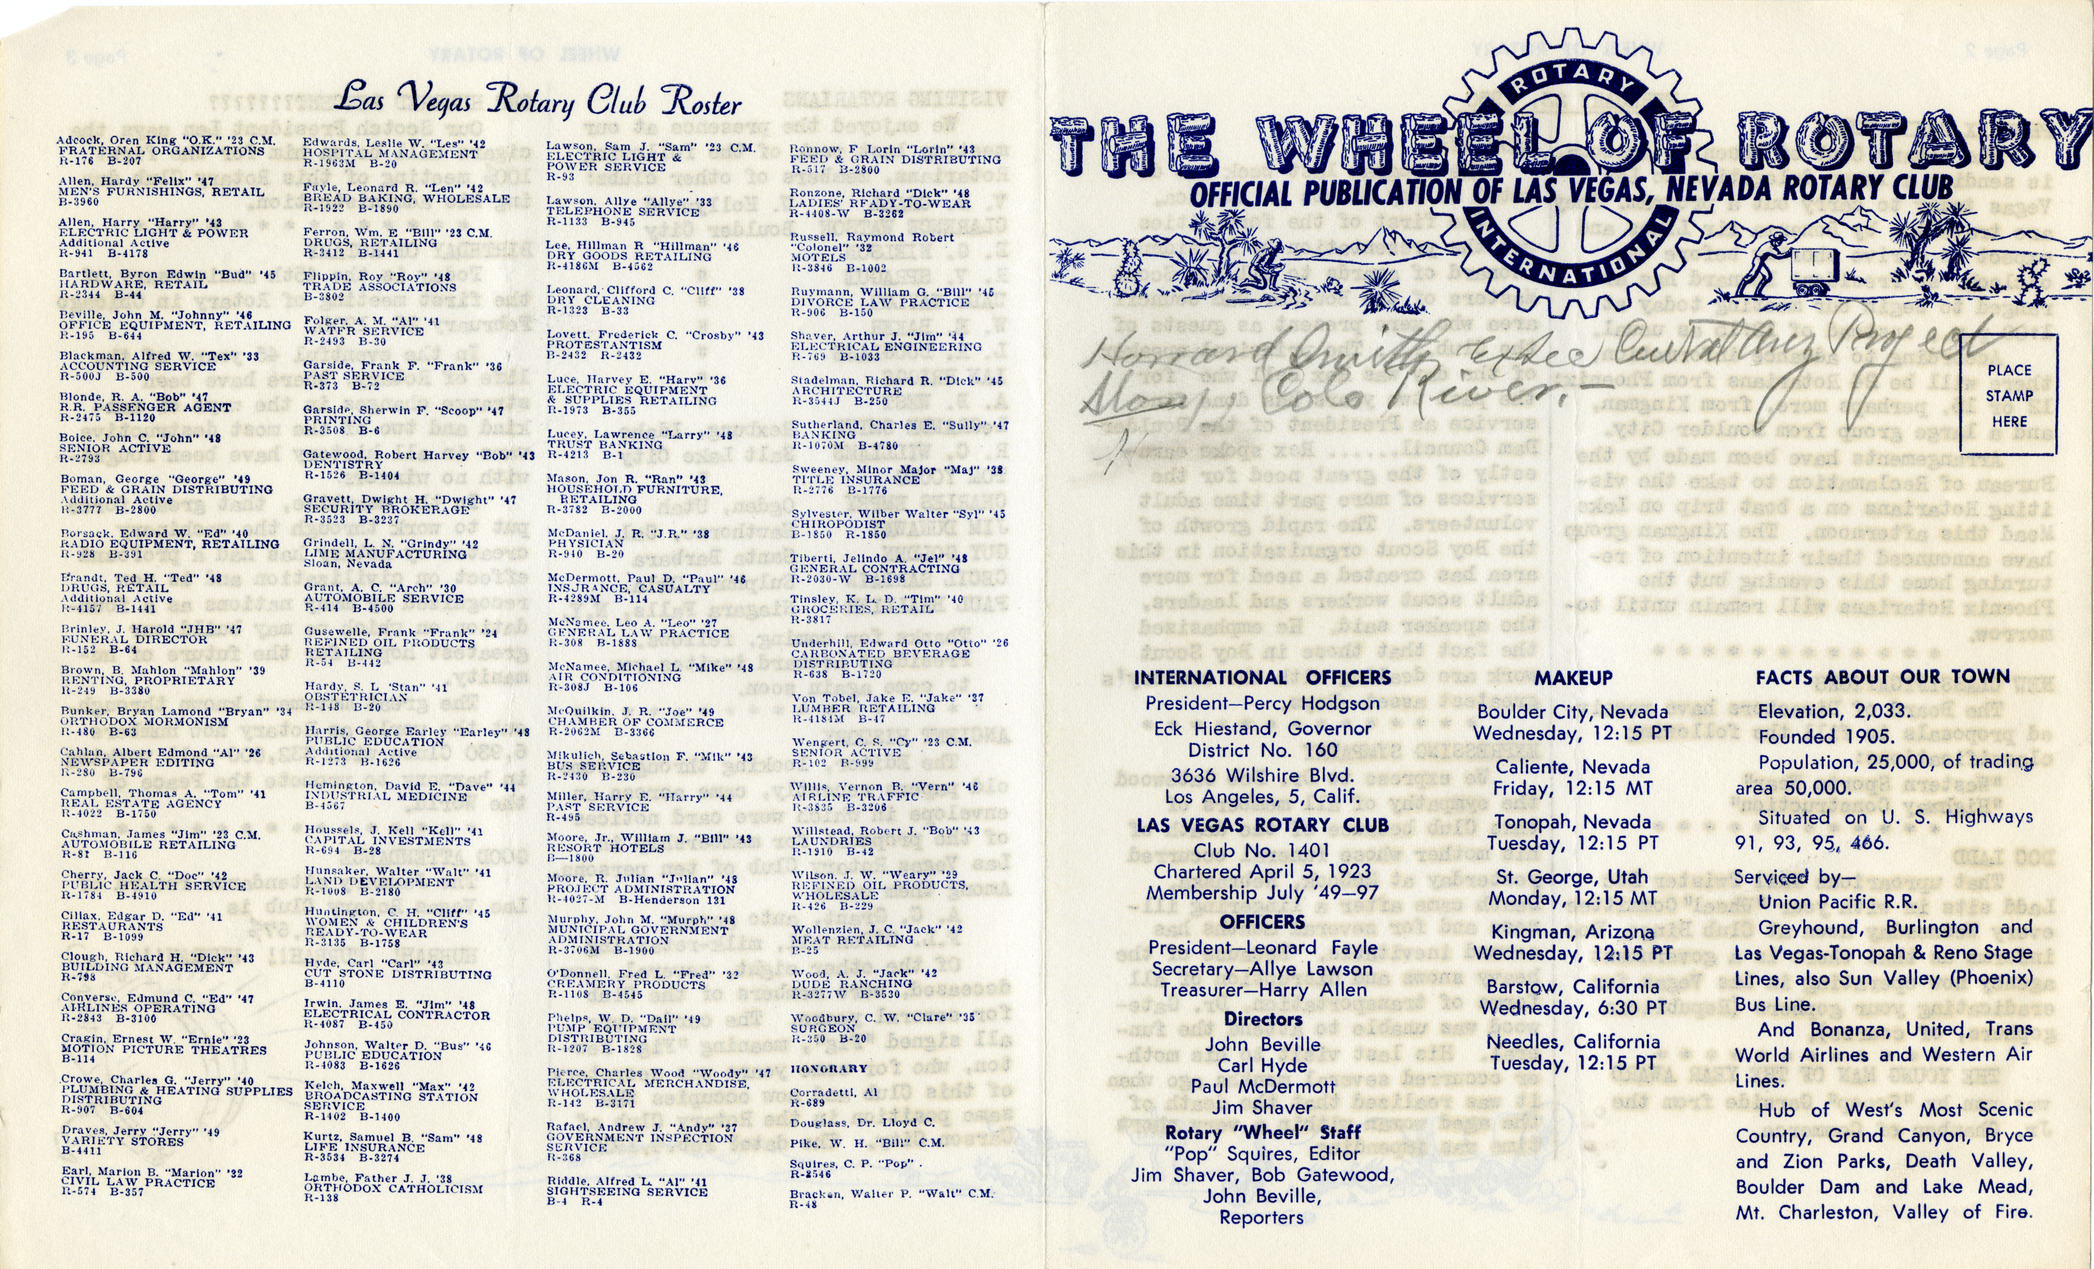 Las Vegas Rotary Club Roster
Adcock, Oren King "O.K." '23 C.M.
FRATERNAL ORGANIZATIONS
R-176 B-207
Allen, Hardy "Felix" '47
MEN'S FURNISHINGS, RETAIL
B-3960
Allen, Harry "Harry" '43
ELECTRIC LIGHT & POWER
Additional Active
R-941 B-4178
Bartlett, Byron Edwin "Bud" '45
HARDWARE, RETAIL
R-2344 B-44
Beville, John M. "Johnny" '46
OFFICE EQUIPMENT, RETAILING
R-195 B-644
Blackman, Alfred W. "Tex" '33
ACCOUNTING SERVICE
R-500J B-500
Blonde, R. A. "Bob" '47
R.R. PASSENGER AGENT
R-2475 B-1120
Boice, John C. "John" '48
SENIOR ACTIVE
R-2793
Boman, George "George" '49
FEED & GRAIN DISTRIBUTING
Additional Active
R-3777 B-2800
Borsack, Edward W. "Ed" '40
RADIO EQUIPMENT, RETAILING
R-928 B-391
Brandt, Ted H. "Ted" '48
DRUGS, RETAIL
Additional Active
R-4157 B-1441
Brinley, J. Harold "JHB" '47
FUNERAL DIRECTOR
R-152 B-64
Brown, B. Mahlon "Mahlon" '39
RENTING, PROPRIETARY
R-249 B-3380
Bunker, Bryan Lamond "Bryan" '34
ORTHODOX MORMONISM
R-480 B-63
Cahlan, Albert Edmond "Al" '26
NEWSPAPER EDITING
R-280 B-796
Campbell, Thomas A. "Tom" '41
REAL ESTATE AGENCY
R-4022 B-1750
Cashman, James "Jim" '23 C.M.
AUTOMOBILE RETAILING
R-81 B-116
Cherry, Jack C. "Doc" '42
PUBLIC HEALTH SERVICE
R-1784 B-4910
Cillax, Edgar D. "Ed" '41
RESTAURANTS
R-17 B-1099
Clough, Richard H. "Dick" '43
BUILDING MANAGEMENT
R-798
Converse, Edmund C. "Ed" '47
AIRLINES OPERATING
R-2843 B-3100
Cragin, Ernest W. "Ernie" '23
MOTION PICTURE THEATRES
B-114
Crowe, Charles G. "Jerry" '40
PLUMBING & HEATING SUPPLIES
DISTRIBUTING
R-907 B-604
Draves, Jerry "Jerry" '49
VARIETY STORES
B-4411
Earl, Marion B. "Marion" '32
CIVIL LAW PRACTICE
R-574 B-357
Edwards, Leslie W. "Les" '42
HOSPITAL MANAGEMENT
R-1963M B-20
Fayle, Leonard R. "Len" '42
BREAD BAKING, WHOLESALE
R-1922 B-1890
Ferron, Wm. E "Bill" '23 C.M.
DRUGS, RETAILING
R-3412 B-1441
Flippin, Roy "Roy" '48
TRADE ASSOCIATIONS
B-3802
Folger, A. M. "Al" '41
WATFR SERVICE
R-2493 B-30
Garside, Frank F. "Frank" '36
PAST SERVICE
R-373 B-72
Garside, Sherwin F. "Scoop" '47
PRINTING
R-3508 B-6
Gatewood, Robert Harvey "Bob" '43
DENTISTRY
R-1526 B-1404
Gravett, Dwight H. "Dwight" '47
SECURITY BROKERAGE
R-3523 B-3237
Grindell, L. N. "Grindy" '42
LIME MANUFACTURING
Sloan, Nevada
Grant, A. C. "Arch" '30
AUTOMOBILE SERVICE
R-414 B-4500
Gusewelle, Frank "Frank" '24
REFINED OIL PRODUCTS
RETAILING
R-54 B-442
Hardy, S. L 'Stan" '41
OBSTETRICIAN
R-148 B-20
Harris, George Earley "Earley" '48
PUBLIC EDUCATION
Additional Active
R-1273 B-1626
Hemington, David E. "Dave" '44
INDUSTRIAL MEDICINE
B-4567
Houssels, J. Kell "Kell" '41
CAPITAL INVESTMENTS
R-694 B-28
Hunsaker, Walter "Walt" '41
LAND DEVELOPMENT
R-1008 B-2180
Huntington, C. H. "Cliff" '45
WOMEN & CHILDREN'S
READY-TO-WEAR
R-3135 B-1758
Hyde, Carl "Carl" '43
CUT STONE DISTRIBUTING
B-4110
Irwin, James E. "Jim" '48
ELECTRICAL CONTRACTOR
R-4087 B-450
Johnson, Walter D. "Bus" '46
PUBLIC EDUCATION
R-4083 B-1626
Kelch, Maxwell "Max" '42
BROADCASTING STATION
SERVICE
R-1402 B-1400
Kurtz, Samuel B. "Sam" '48
LIFE INSURANCE
R-3534 B-3274
Lambe, Father J. J. '38
ORTHODOX CATHOLICISM
R-138
Lawson, Sam J. "Sam" '23 C.M.
ELECTRIC LIGHT &
POWER SERVICE
R-93
Lawson, Allye "Allye" '33
TELEPHONE SERVICE
R-1133 B-945
Lee, Hillman R "Hillman" '46
DRY GOODS RETAILING
R-4186M B-4562
Leonard, Clifford C. "Cliff" '38
DRY CLEANING
R-1323 B-33
Lovett, Frederick C. "Crosby" '43
PROTESTANTISM
B-2432 R-2432
Luce, Harvey E. "Harv" '36
ELECTRIC EQUIPMENT
& SUPPLIES RETAILING
R-1973 B-355
Lucey, Lawrence "Larry" '48
TRUST BANKING
R-4213 B-1
Mason, Jon R. "Ran" '43
HOUSEHOLD FURNITURE,
RETAILING
R-3782 B-2000
McDaniel, J. R. "J.R." '38
PHYSICIAN
R-940 B-20
McDermott, Paul D. "Paul" '46
INSURANCE, CASUALTY
R-4289M B-114
McNamee, Leo A. "Leo" '27
GENERAL LAW PRACTICE
R-308 B-1888
McNamee, Michael L. "Mike" '48
AIR CONDITIONING
R-308J B-106
McQuilkin, J. R. "Joe" '49
CHAMBER OF COMMERCE
R-2062M B-3366
Mikulich, Sebastion F. "Mik" '43
BUS SERVICE
R-2430 B-230
Miller, Harry E. "Harry" '44
PAST SERVICE
R-495
Moore, Jr., William J. "Bill" '43
RESORT HOTELS
B—1800
Moore, R. Julian "Julian" '48
PROJECT ADMINISTRATION
R-4027-M B-Henderson 131
Murphy, John M. "Murph" '48
MUNICIPAL GOVERNMENT
ADMINISTRATION
R-3706M B-1900
O'Donnell, Fred L. "Fred" '32
CREAMERY PRODUCTS
R-1108 B-4545
Phelps, W. D. "Dall" '49
PUMP EQUIPMENT
DISTRIBUTING
R-1207 B-1828
Pierce, Charles Wood "Woody" '47
ELECTRICAL MERCHANDISE,
WHOLESALE
R-142 B-3171
Rafael, Andrew J. "Andy" '37
GOVERNMENT INSPECTION
SERVICE
R-368
Riddle, Alfred L. "Al" '41
SIGHTSEEING SERVICE
B-4 R-4
Ronnow, F Lorin "Lorin" '43
FEED & GRAIN DISTRIBUTING
R-517 B-2800
Ronzone, Richard "Dick" '48
LADIES' RFADY-TO-WEAR
R-4408-W B-3262
Russell, Raymond Robert
"Colonel" '32
MOTELS
R-3846 B-1002
Ruymann, William G. "Bill" '45
DIVORCE LAW PRACTICE
R-906 B-150
Shaver, Arthur J. "Jim" '44
ELECTRICAL ENGINEERING
R-769 B-1033
Stadelman, Richard R. "Dick" '45
ARCHITECTURE
R-3544J B-250
Sutherland, Charles E. "Sully" '47
BANKING
R-1070M B-4780
Sweeney, Minor Major "Maj" '38
TITLE INSURANCE
R-2776 B-1776
Sylvester, Wilber Walter "Syl" '45
CHIROPODIST
B-1850 R-1850
Tiberti, Jelindo A. "Jel" '48
GENERAL CONTRACTING
R-2030-W B-1698
Tinsley, K. L. D. "Tim" '40
GROCERIES, RETAIL
R-3817
Underhill, Edward Otto "Otto" '26
CARBONATED BEVERAGE
DISTRIBUTING
R-638 B-1720
Von Tobel, Jake E. "Jake" '37
LUMBER RETAILING
R-4184M B-47
Wengert, C. S. "Cy" '23 C.M.
SENIOR ACTIVE
R-102 B-999
Willis, Vernon B. "Vern" '46
AIRLINE TRAFFIC
R-3835 B-3206
Willstead, Robert J. "Bob" '43
LAUNDRIES
R-1910 B-42
Wilson, J. W. "Weary" '29
REFINED OIL PRODUCTS,
WHOLESALE
R-426 B-229
Wollenzien, J. C. "Jack" '42
MEAT RETAILING
B-25
Wood, A. J. "Jack" '42
DUDE RANCHING
R-3277W B-3530
Woodbury, C. W. "Clare" '35
SURGEON
R-350 B-20
HONORARY
Corradetti, Al
R-689
Douglass, Dr. Lloyd C.
Pike, W. H. "Bill" C.M.
Squires, C. P. "Pop"
R-8546
Bracken, Walter P. "Walt" C.M.
R-48
ROTARY
THE WHEEL OF ROTARY
OFFICIAL PUBLICATION OF LAS VEGAS, NEVADA ROTARY CLUB
INTERNATIONAL
Howard Smith Project
Along Colo River.
PLACE
STAMP
HERE
INTERNATIONAL OFFICERS
President—Percy Hodgson
Eck Hiestand, Governor
District No. 160
3636 Wilshire Blvd.
Los Angeles, 5, Calif.
LAS VEGAS ROTARY CLUB
Club No. 1401
Chartered April 5, 1923
Membership July '49—97
OFFICERS
President—Leonard Fayle
Secretary—Allye Lawson
Treasurer—Harry Allen
Directors
John Beville
Carl Hyde
Paul McDermott
Jim Shaver
Rotary "Wheel" Staff
"Pop" Squires, Editor
Jim Shaver, Bob Gatewood,
John Beville,
Reporters
MAKEUP
Boulder City, Nevada
Wednesday, 12:15 PT
Caliente, Nevada
Friday, 12:15 MT
Tonopah, Nevada
Tuesday, 12:15 PT
St. George, Utah
Monday, 12:15 MT
Kingman, Arizona
Wednesday, 12:15 PT
Barstow, California
Wednesday, 6:30 PT
Needles, California
Tuesday, 12:15 PT
FACTS ABOUT OUR TOWN
Elevation, 2,033.
Founded 1905.
Population, 25,000, of trading
area 50,000.
Situated on U. S. Highways
91, 93, 95, 466.
Serviced by—
Union Pacific R.R.
Greyhound, Burlington and
Las Vegas-Tonopah & Reno Stage
Lines, also Sun Valley (Phoenix)
Bus Line.
And Bonanza, United, Trans
World Airlines and Western Air
Lines.
Hub of West's Most Scenic
Country, Grand Canyon, Bryce
and Zion Parks, Death Valley,
Boulder Dam and Lake Mead,
Mt. Charleston, Valley of Fire.